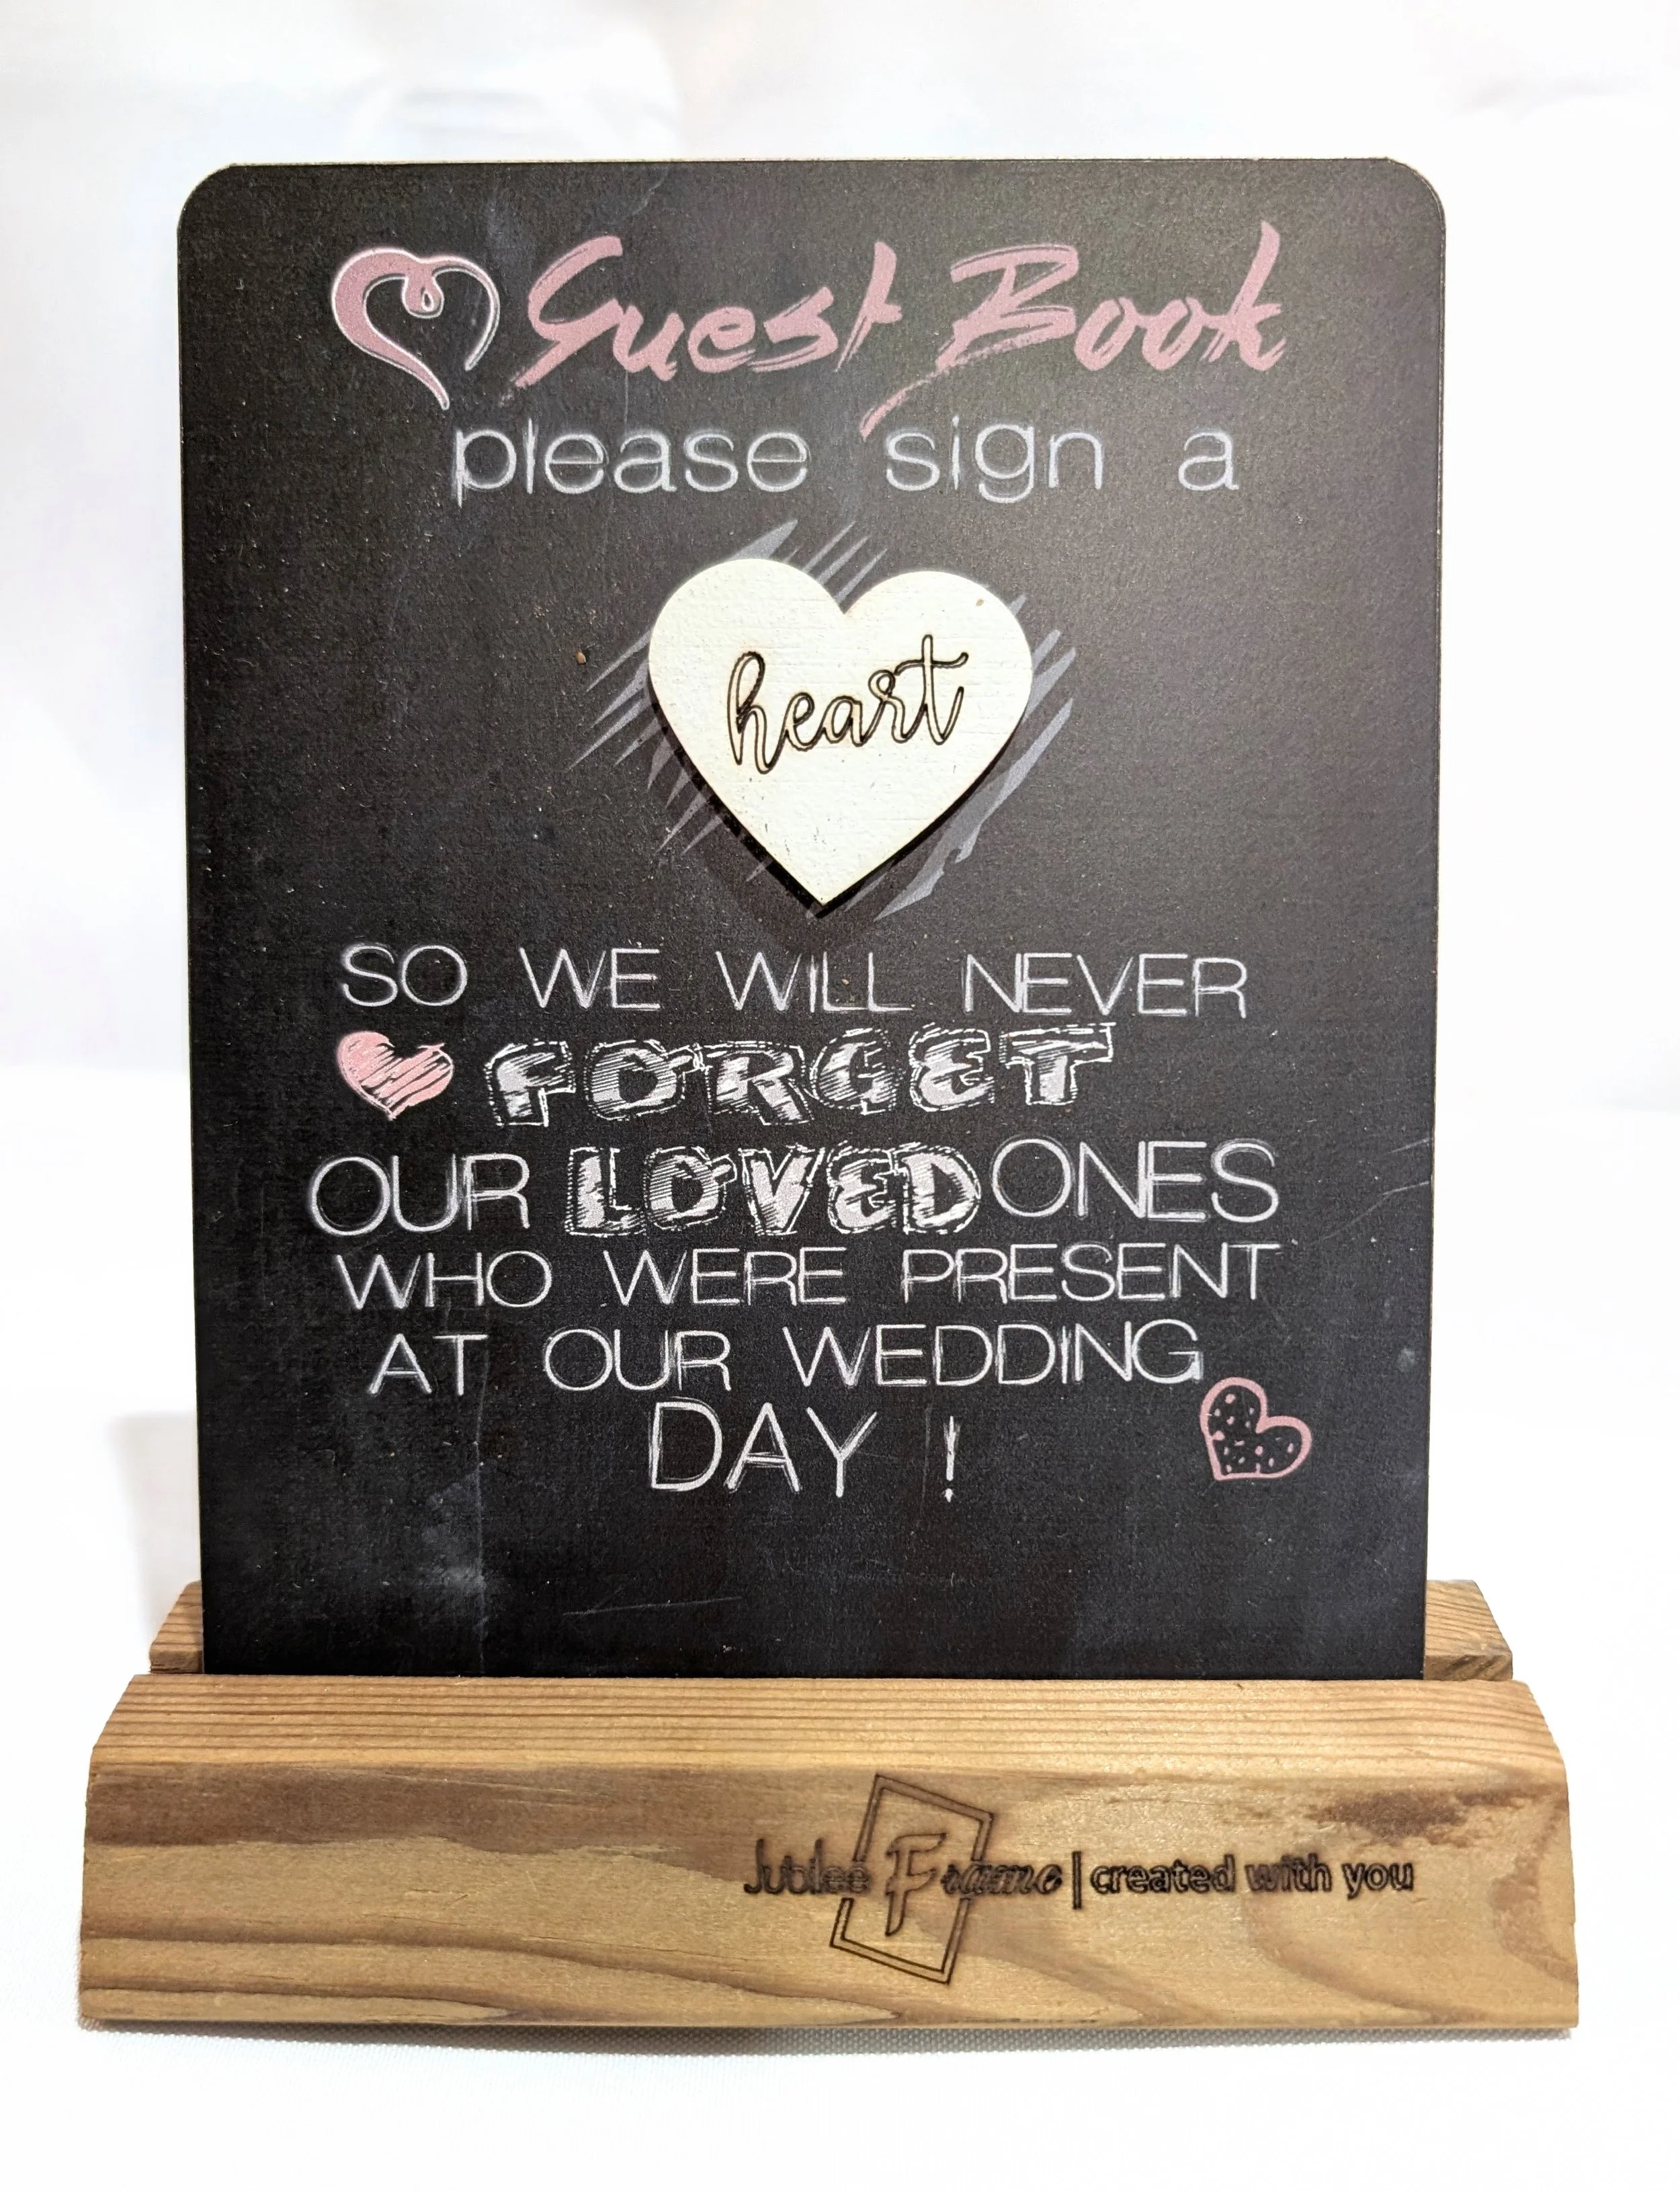 Guest Book
please sign a
heart
SO WE WILL NEVER
FORGET
OUR LOVED ONES
WHO WERE PRESENT
AT OUR WEDDING
DAY !
Jubilee Frame | created with you